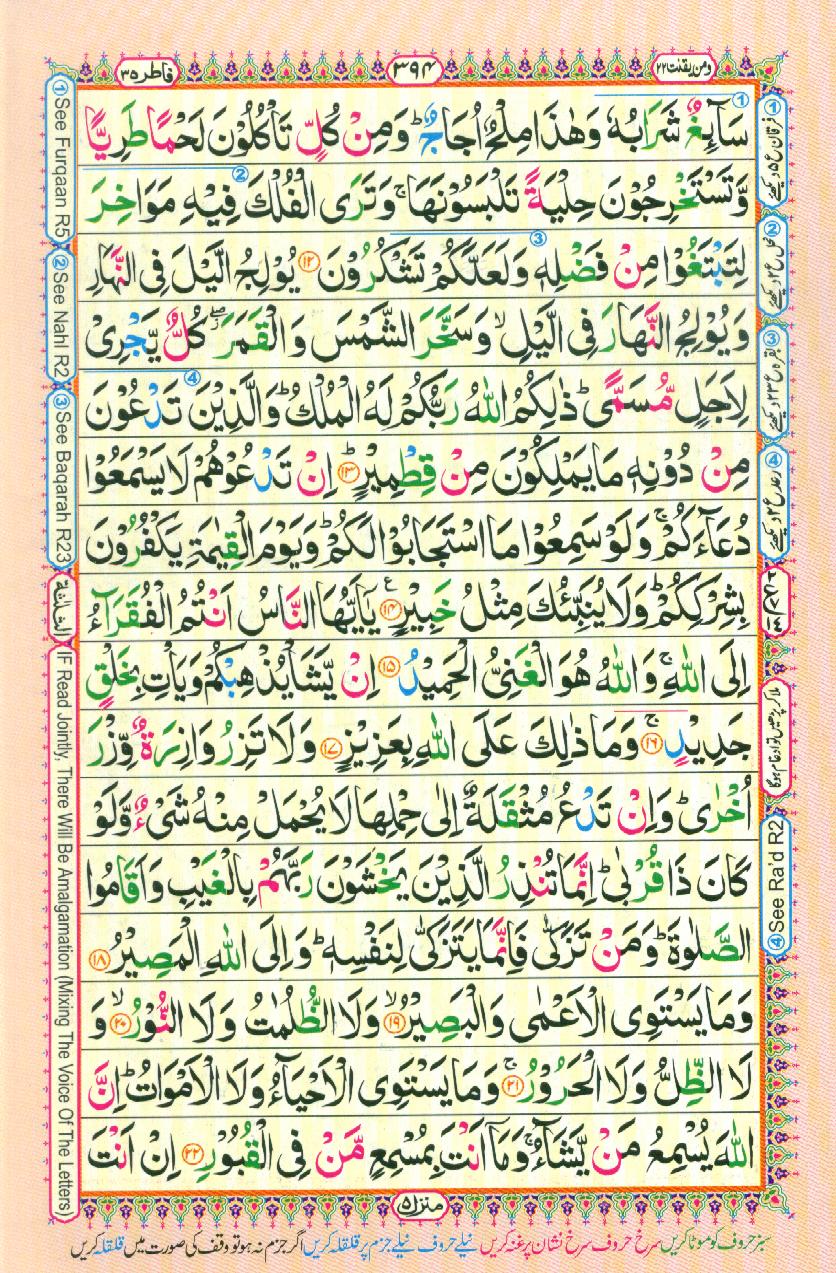 ومن یقنت ۲۲
۳۹۴
فاطر ۳۵
سَآئِغٌ شَرَابُهٗ وَهٰذَا مِلْحٌ اُجَاجٌ ؕ وَمِنْ كُلٍّ تَاْكُلُوْنَ لَحْمًا طَرِيًّا
وَّتَسْتَخْرِجُوْنَ حِلْيَةً تَلْبَسُوْنَهَا ۚ وَتَرَى الْفُلْكَ فِيْهِ مَوَاخِرَ
لِتَبْتَغُوْا مِنْ فَضْلِهٖ وَلَعَلَّكُمْ تَشْكُرُوْنَ ۝۱۲ يُوْلِجُ الَّيْلَ فِى النَّهَارِ
وَيُوْلِجُ النَّهَارَ فِى الَّيْلِ ۙ وَسَخَّرَ الشَّمْسَ وَالْقَمَرَ ۖ كُلٌّ يَّجْرِىْ
لِاَجَلٍ مُّسَمًّى ؕ ذٰلِكُمُ اللّٰهُ رَبُّكُمْ لَهُ الْمُلْكُ ؕ وَالَّذِيْنَ تَدْعُوْنَ
مِنْ دُوْنِهٖ مَا يَمْلِكُوْنَ مِنْ قِطْمِيْرٍ ؕ ۝۱۳ اِنْ تَدْعُوْهُمْ لَا يَسْمَعُوْا
دُعَآءَكُمْ ۚ وَلَوْ سَمِعُوْا مَا اسْتَجَابُوْا لَكُمْ ؕ وَيَوْمَ الْقِيٰمَةِ يَكْفُرُوْنَ
بِشِرْكِكُمْ ؕ وَلَا يُنَبِّئُكَ مِثْلُ خَبِيْرٍ ۝۱۴ يٰۤاَيُّهَا النَّاسُ اَنْتُمُ الْفُقَرَآءُ
اِلَى اللّٰهِ ۚ وَاللّٰهُ هُوَ الْغَنِىُّ الْحَمِيْدُ ۝۱۵ اِنْ يَّشَاْ يُذْهِبْكُمْ وَيَاْتِ بِخَلْقٍ
جَدِيْدٍ ۚ ۝۱۶ وَمَا ذٰلِكَ عَلَى اللّٰهِ بِعَزِيْزٍ ۝۱۷ وَلَا تَزِرُ وَازِرَةٌ وِّزْرَ
اُخْرٰى ؕ وَاِنْ تَدْعُ مُثْقَلَةٌ اِلٰى حِمْلِهَا لَا يُحْمَلْ مِنْهُ شَىْءٌ وَّلَوْ
كَانَ ذَا قُرْبٰى ؕ اِنَّمَا تُنْذِرُ الَّذِيْنَ يَخْشَوْنَ رَبَّهُمْ بِالْغَيْبِ وَاَقَامُوا
الصَّلٰوةَ ؕ وَمَنْ تَزَكّٰى فَاِنَّمَا يَتَزَكّٰى لِنَفْسِهٖ ؕ وَاِلَى اللّٰهِ الْمَصِيْرُ ۝۱۸
وَمَا يَسْتَوِى الْاَعْمٰى وَالْبَصِيْرُ ۙ ۝۱۹ وَلَا الظُّلُمٰتُ وَلَا النُّوْرُ ۙ ۝۲۰ وَ
لَا الظِّلُّ وَلَا الْحَرُوْرُ ۚ ۝۲۱ وَمَا يَسْتَوِى الْاَحْيَآءُ وَلَا الْاَمْوَاتُ ؕ اِنَّ
اللّٰهَ يُسْمِعُ مَنْ يَّشَآءُ ۚ وَمَاۤ اَنْتَ بِمُسْمِعٍ مَّنْ فِى الْقُبُوْرِ ۝۲۲ اِنْ اَنْتَ
منزل ۵
① See Furqaan R5
② See Nahl R2
③ See Baqarah R23
IF Read Jointly, There Will Be Amalgamation (Mixing The Voice Of The Letters)
① فرقان ع ۵ دیکھئے
② نحل ع ۲ دیکھئے
③ بقرہ ع ۲۳ دیکھئے
④ رعد ع ۲ دیکھئے
ملا کر پڑھیں تو ادغام ہوگا
④ See Ra'd R2
سبز حروف کو موٹا کریں سرخ حروف سرخ نشان پر غنہ کریں نیلے حروف نیلے جزم پر قلقلہ کریں اگر جزم نہ ہو تو وقف کی صورت میں قلقلہ کریں